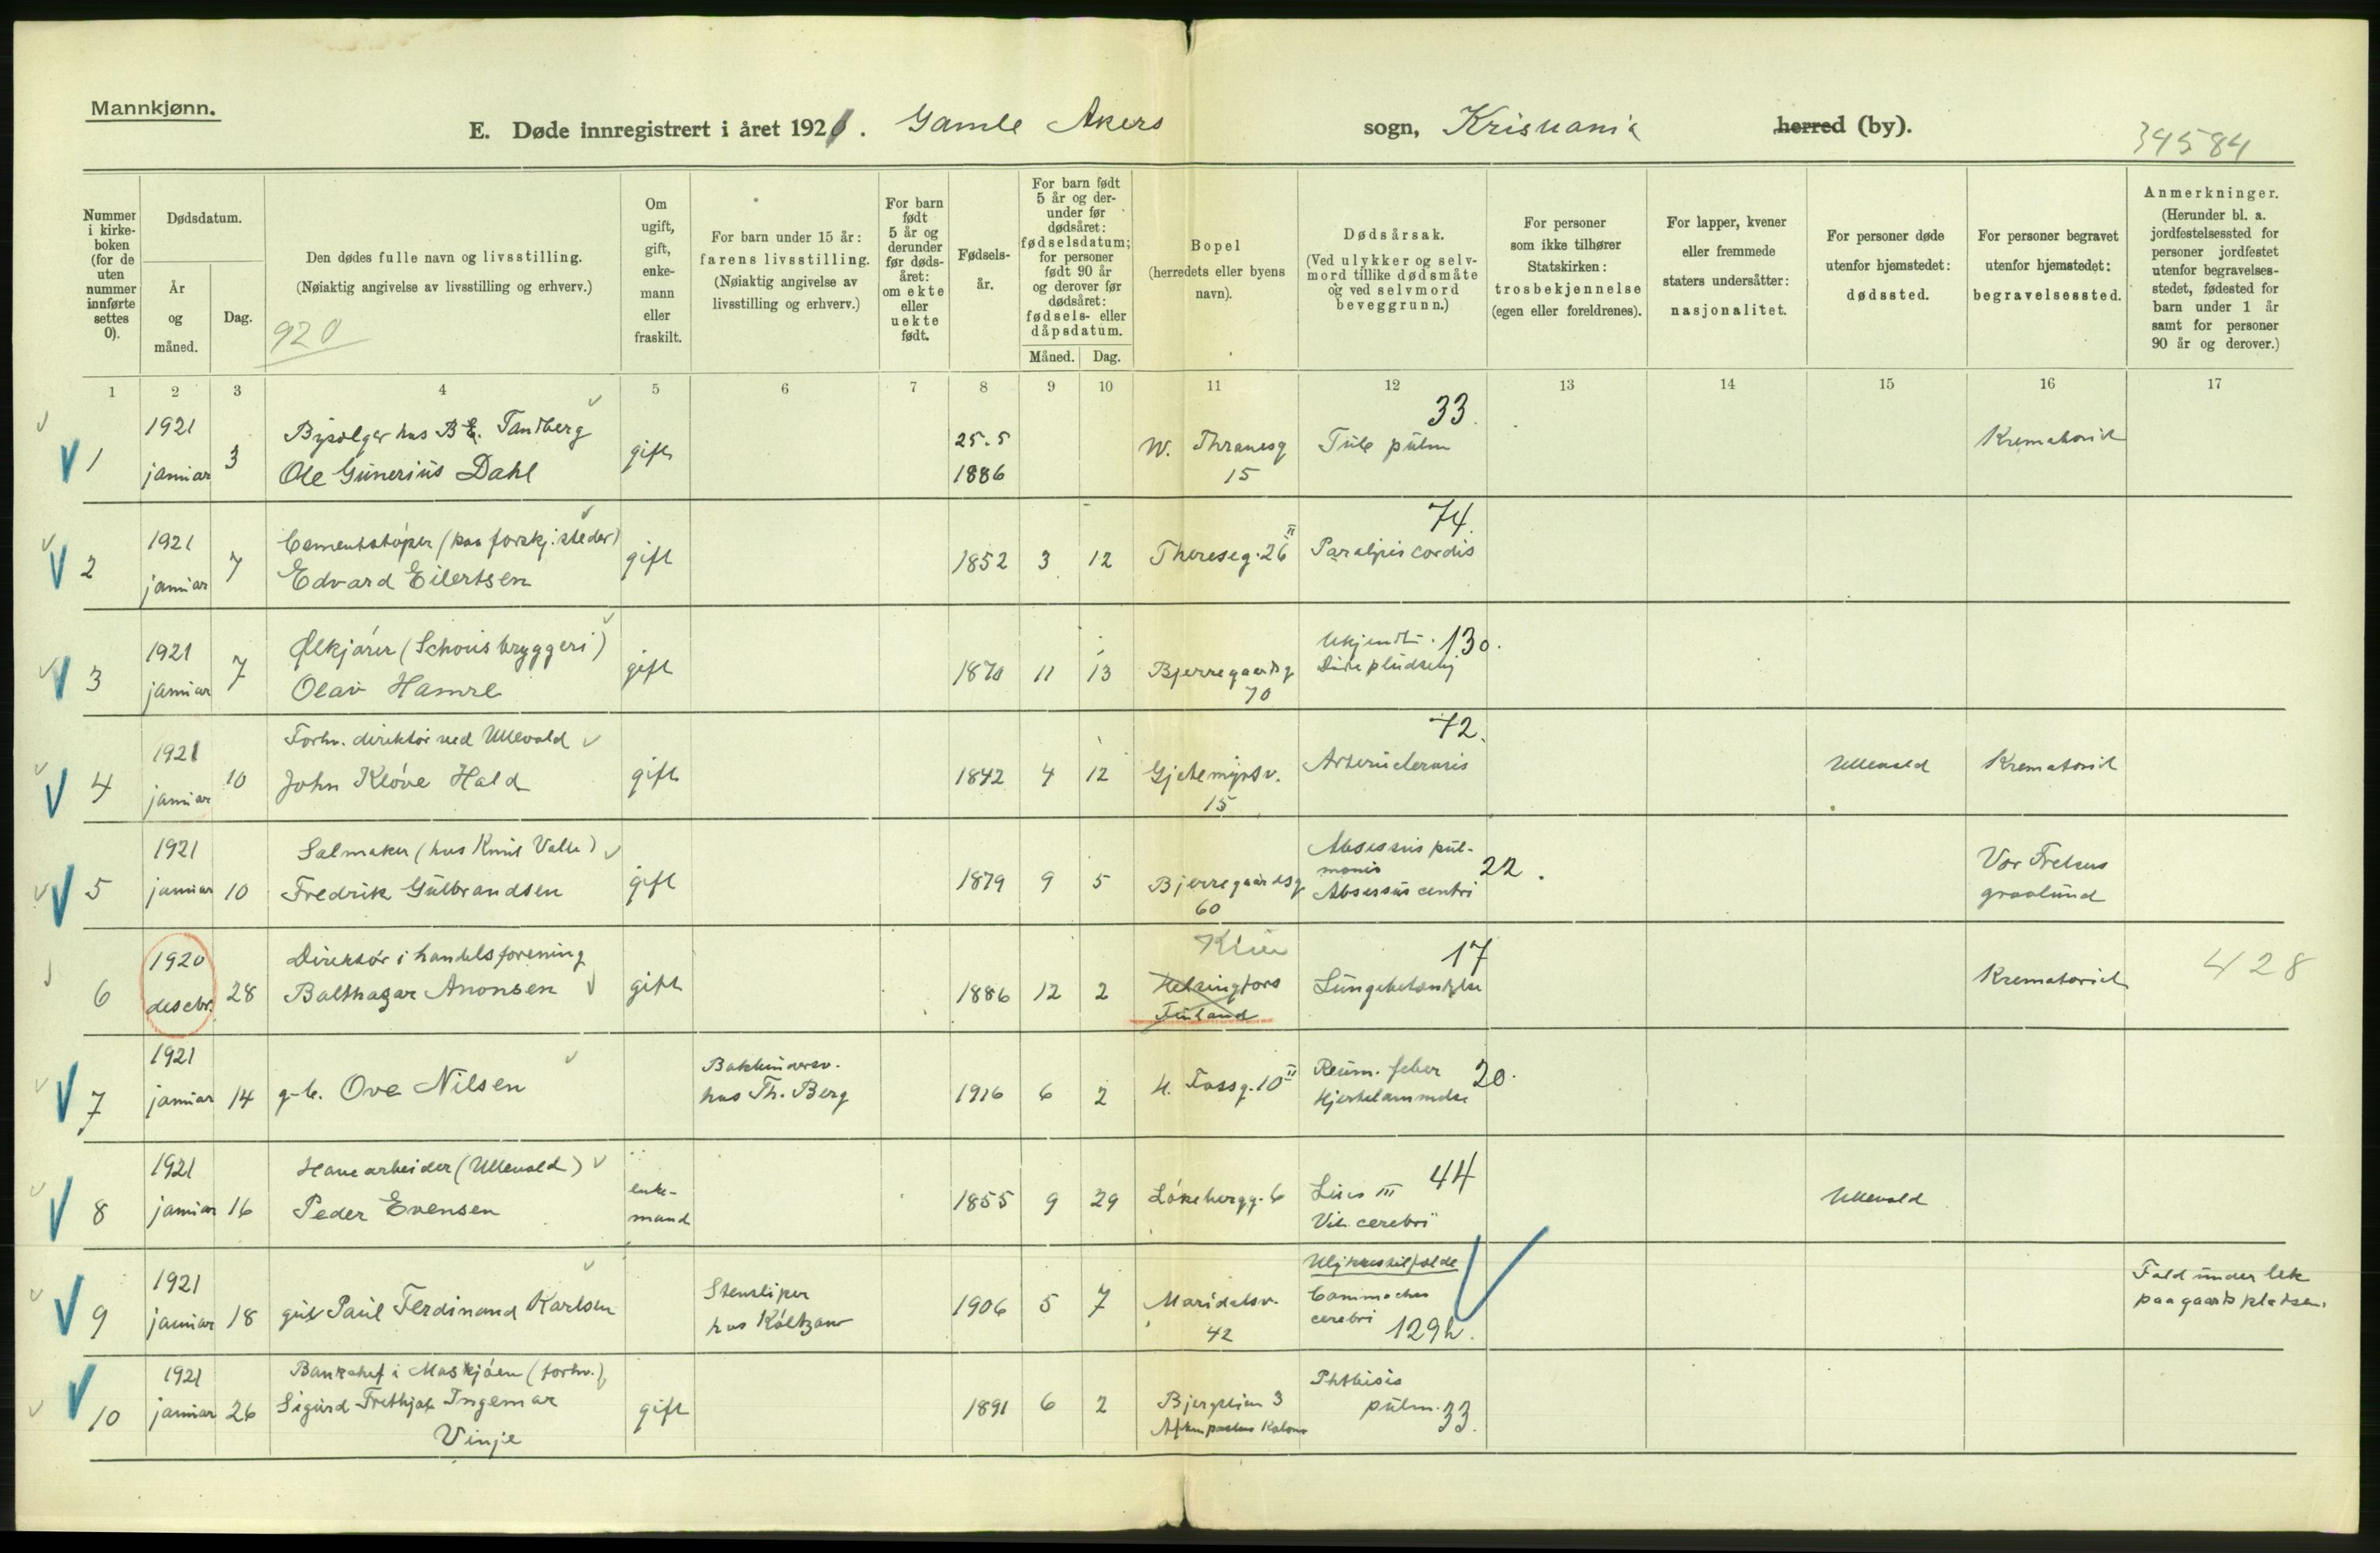 Mannkjønn.
E. Døde innregistrert i året 1921. Gamle Akers sogn, Kristiania herred (by).
34584
Nummer i kirkeboken (for de uten nummer innførte settes 0).
Dødsdatum.
År og måned.
Dag.
Den dødes fulle navn og livsstilling.
(Nøiaktig angivelse av livsstilling og erhverv.)
920
Om ugift, gift, enkemann eller fraskilt.
For barn under 15 år: farens livsstilling.
(Nøiaktig angivelse av livsstilling og erhverv.)
For barn født 5 år og derunder før dødsåret: om ekte eller uekte født.
Fødselsår.
For barn født 5 år og derunder før dødsåret: fødselsdatum; for personer født 90 år og derover før dødsåret: fødsels- eller dåpsdatum.
Måned. Dag.
Bopel
(herredets eller byens navn).
Dødsårsak.
(Ved ulykker og selvmord tillike dødsmåte og ved selvmord beveggrunn.)
For personer som ikke tilhører Statskirken: trosbekjennelse (egen eller foreldrenes).
For lapper, kvener eller fremmede staters undersåtter: nasjonalitet.
For personer døde utenfor hjemstedet: dødssted.
For personer begravet utenfor hjemstedet: begravelsessted.
Anmerkninger.
(Herunder bl. a. jordfestelsessted for personer jordfestet utenfor begravelsesstedet, fødested for barn under 1 år samt for personer 90 år og derover.)
1 2 3 4 5 6 7 8 9 10 11 12 13 14 15 16 17
1 1921 januar 3 hos B.E. Tandberg
Ole Gunerius Dahl gift 25.5 1886 W. Thranesg 15 33. Tub pulm Krematoriet
2 1921 januar 7 Cementstøper (paa forskj. steder)
Edvard Eilertsen gift 1852 3 12 Thereseg. 26 II 74. Paralysis cordis
3 1921 januar 7 Ølkjører (Schous bryggeri)
Olav Hamre gift 1870 11 13 Bjerregaardsg 70 Ukjendt. 130. Døde pludselig
4 1921 januar 10 Forhv. direktør ved Ullevold
John Kløve Hald gift 1842 4 12 Gjetemyrsv. 15 72. Ullevold Krematoriet
5 1921 januar 10 Salmaker (hos Knut Valle)
Fredrik Gulbrandsen gift 1879 9 5 Bjerregaardsg 60 Absessus pulmonis Absessus cerebri 22. Vor Frelsers gravlund
6 1920 desebr. 28 Direktør i handelsforening
Balthazar Anonsen gift 1886 12 2 Helsingfors Finland 17 Lungebetændelse Krematoriet 428
7 1921 januar 14 g.b. Ove Nilsen hos Th. Berg 1916 6 2 U. Fossg. 10 II Reum. feber Hjertelammelse 20.
8 1921 januar 16 Havearbeider (Ullevold)
Peder Evensen enkemand 1855 9 29 Løkebergg. 6 Lues III 44 Vit. cerebri Ullevold
9 1921 januar 18 gut Paul Ferdinand Karlsen Stensliper hos Køltzow 1906 5 7 Maridalsv. 42 Ulykkestilfælde Commochio cerebri 129 h. Fald under lek paa gaardspladsen.
10 1921 januar 26 (forhv.)
Sigurd Frithjof Ingemar
Vinje gift 1891 6 2 3 Phthisis pulm. 33.